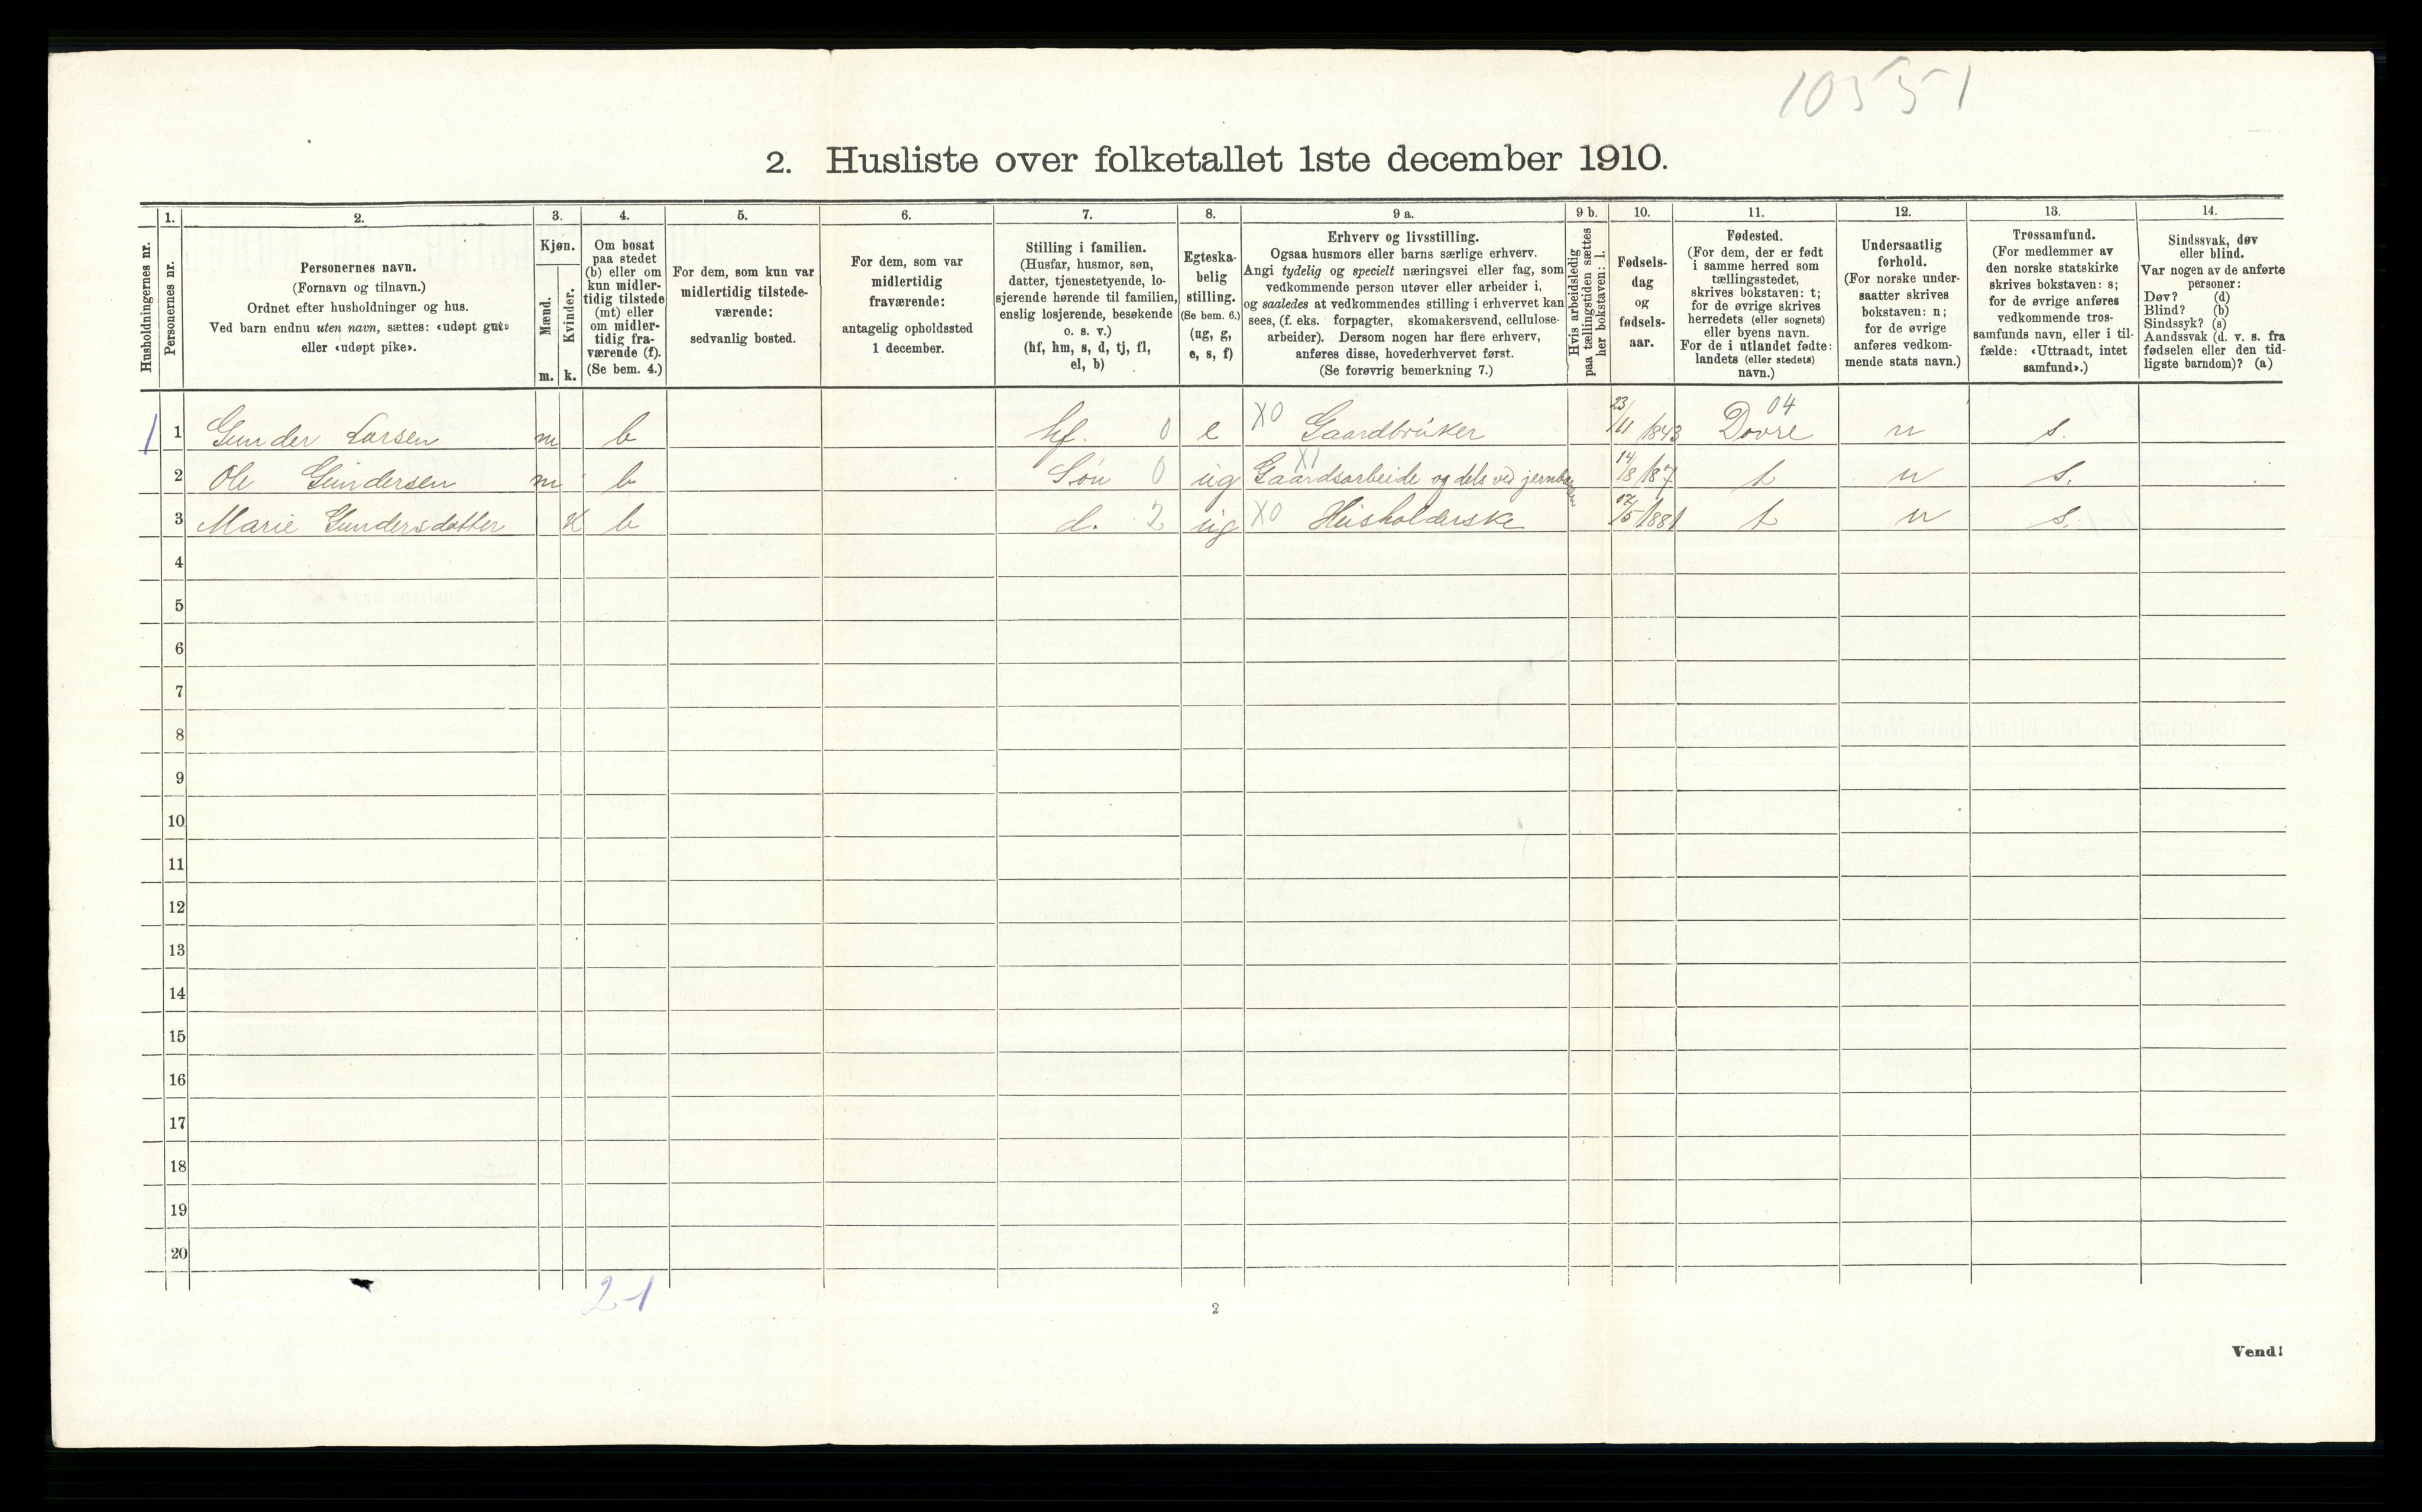 10551
2. Husliste over folketallet 1ste december 1910.
Husholdningernes nr.
1.
Personernes nr.
2.
Personernes navn.
(Fornavn og tilnavn.)
Ordnet efter husholdninger og hus.
Ved barn endnu uten navn, sættes: «udøpt gut»
eller «udøpt pike».
3.
Kjøn.
Mænd.
Kvinder.
m. k.
4.
Om bosat
paa stedet
(b) eller om
kun midler-
tidig tilstede
(mt) eller
om midler-
tidig fra-
værende (f).
(Se bem. 4.)
5.
For dem, som kun var
midlertidig tilstede-
værende:
sedvanlig bosted.
6.
For dem, som var
midlertidig
fraværende:
antagelig opholdssted
1 december.
7.
Stilling i familien.
(Husfar, husmor, søn,
datter, tjenestetyende, lo-
sjerende hørende til familien,
enslig losjerende, besøkende
o. s. v.)
(hf, hm, s, d, tj, fl,
el, b)
8.
Egteska-
belig
stilling.
(Se bem. 6.)
(ug, g,
e, s, f)
9 a.
Erhverv og livsstilling.
Ogsaa husmors eller barns særlige erhverv.
Angi tydelig og specielt næringsvei eller fag, som
vedkommende person utøver eller arbeider i,
og saaledes at vedkommendes stilling i erhvervet kan
sees, (f. eks. forpagter, skomakersvend, cellulose-
arbeider). Dersom nogen har flere erhverv,
anføres disse, hovederhvervet først.
(Se forøvrig bemerkning 7.)
9 b.
Hvis arbeidsledig
paa tællingstiden sættes
her bokstaven: l.
10.
Fødsels-
dag
og
fødsels-
aar.
11.
Fødested.
(For dem, der er født
i samme herred som
tællingsstedet,
skrives bokstaven: t;
for de øvrige skrives
herredets (eller sognets)
eller byens navn.
For de i utlandet fødte:
landets (eller stedets)
navn.)
12.
Undersaatlig
forhold.
(For norske under-
saatter skrives
bokstaven: n;
for de øvrige
anføres vedkom-
mende stats navn.)
13.
Trossamfund.
(For medlemmer av
den norske statskirke
skrives bokstaven: s;
for de øvrige anføres
vedkommende tros-
samfunds navn, eller i til-
fælde: «Uttraadt, intet
samfund».)
14.
Sindssvak, døv
eller blind.
Var nogen av de anførte
personer:
Døv? (d)
Blind? (b)
Sindssyk? (s)
Aandssvak (d. v. s. fra
fødselen eller den tid-
ligste barndom)? (a)
1 1 Gunder Larsen m b hf. 0 e X0 Gaardbruker 23/11 1843 Dovre 04 n s.
2 Ole Gundersen m b Søn 0 ug X1 Gaardsarbeide og dels ved jernbanen 14/8 187 t n s.
3 Marie Gundersdatter k b d. 2 ug X0 Husholderske /5 1881 t n s.
4
5
6
7
8
9
10
11
12
13
14
15
16
17
18
19
20
2-1
2
Vend!